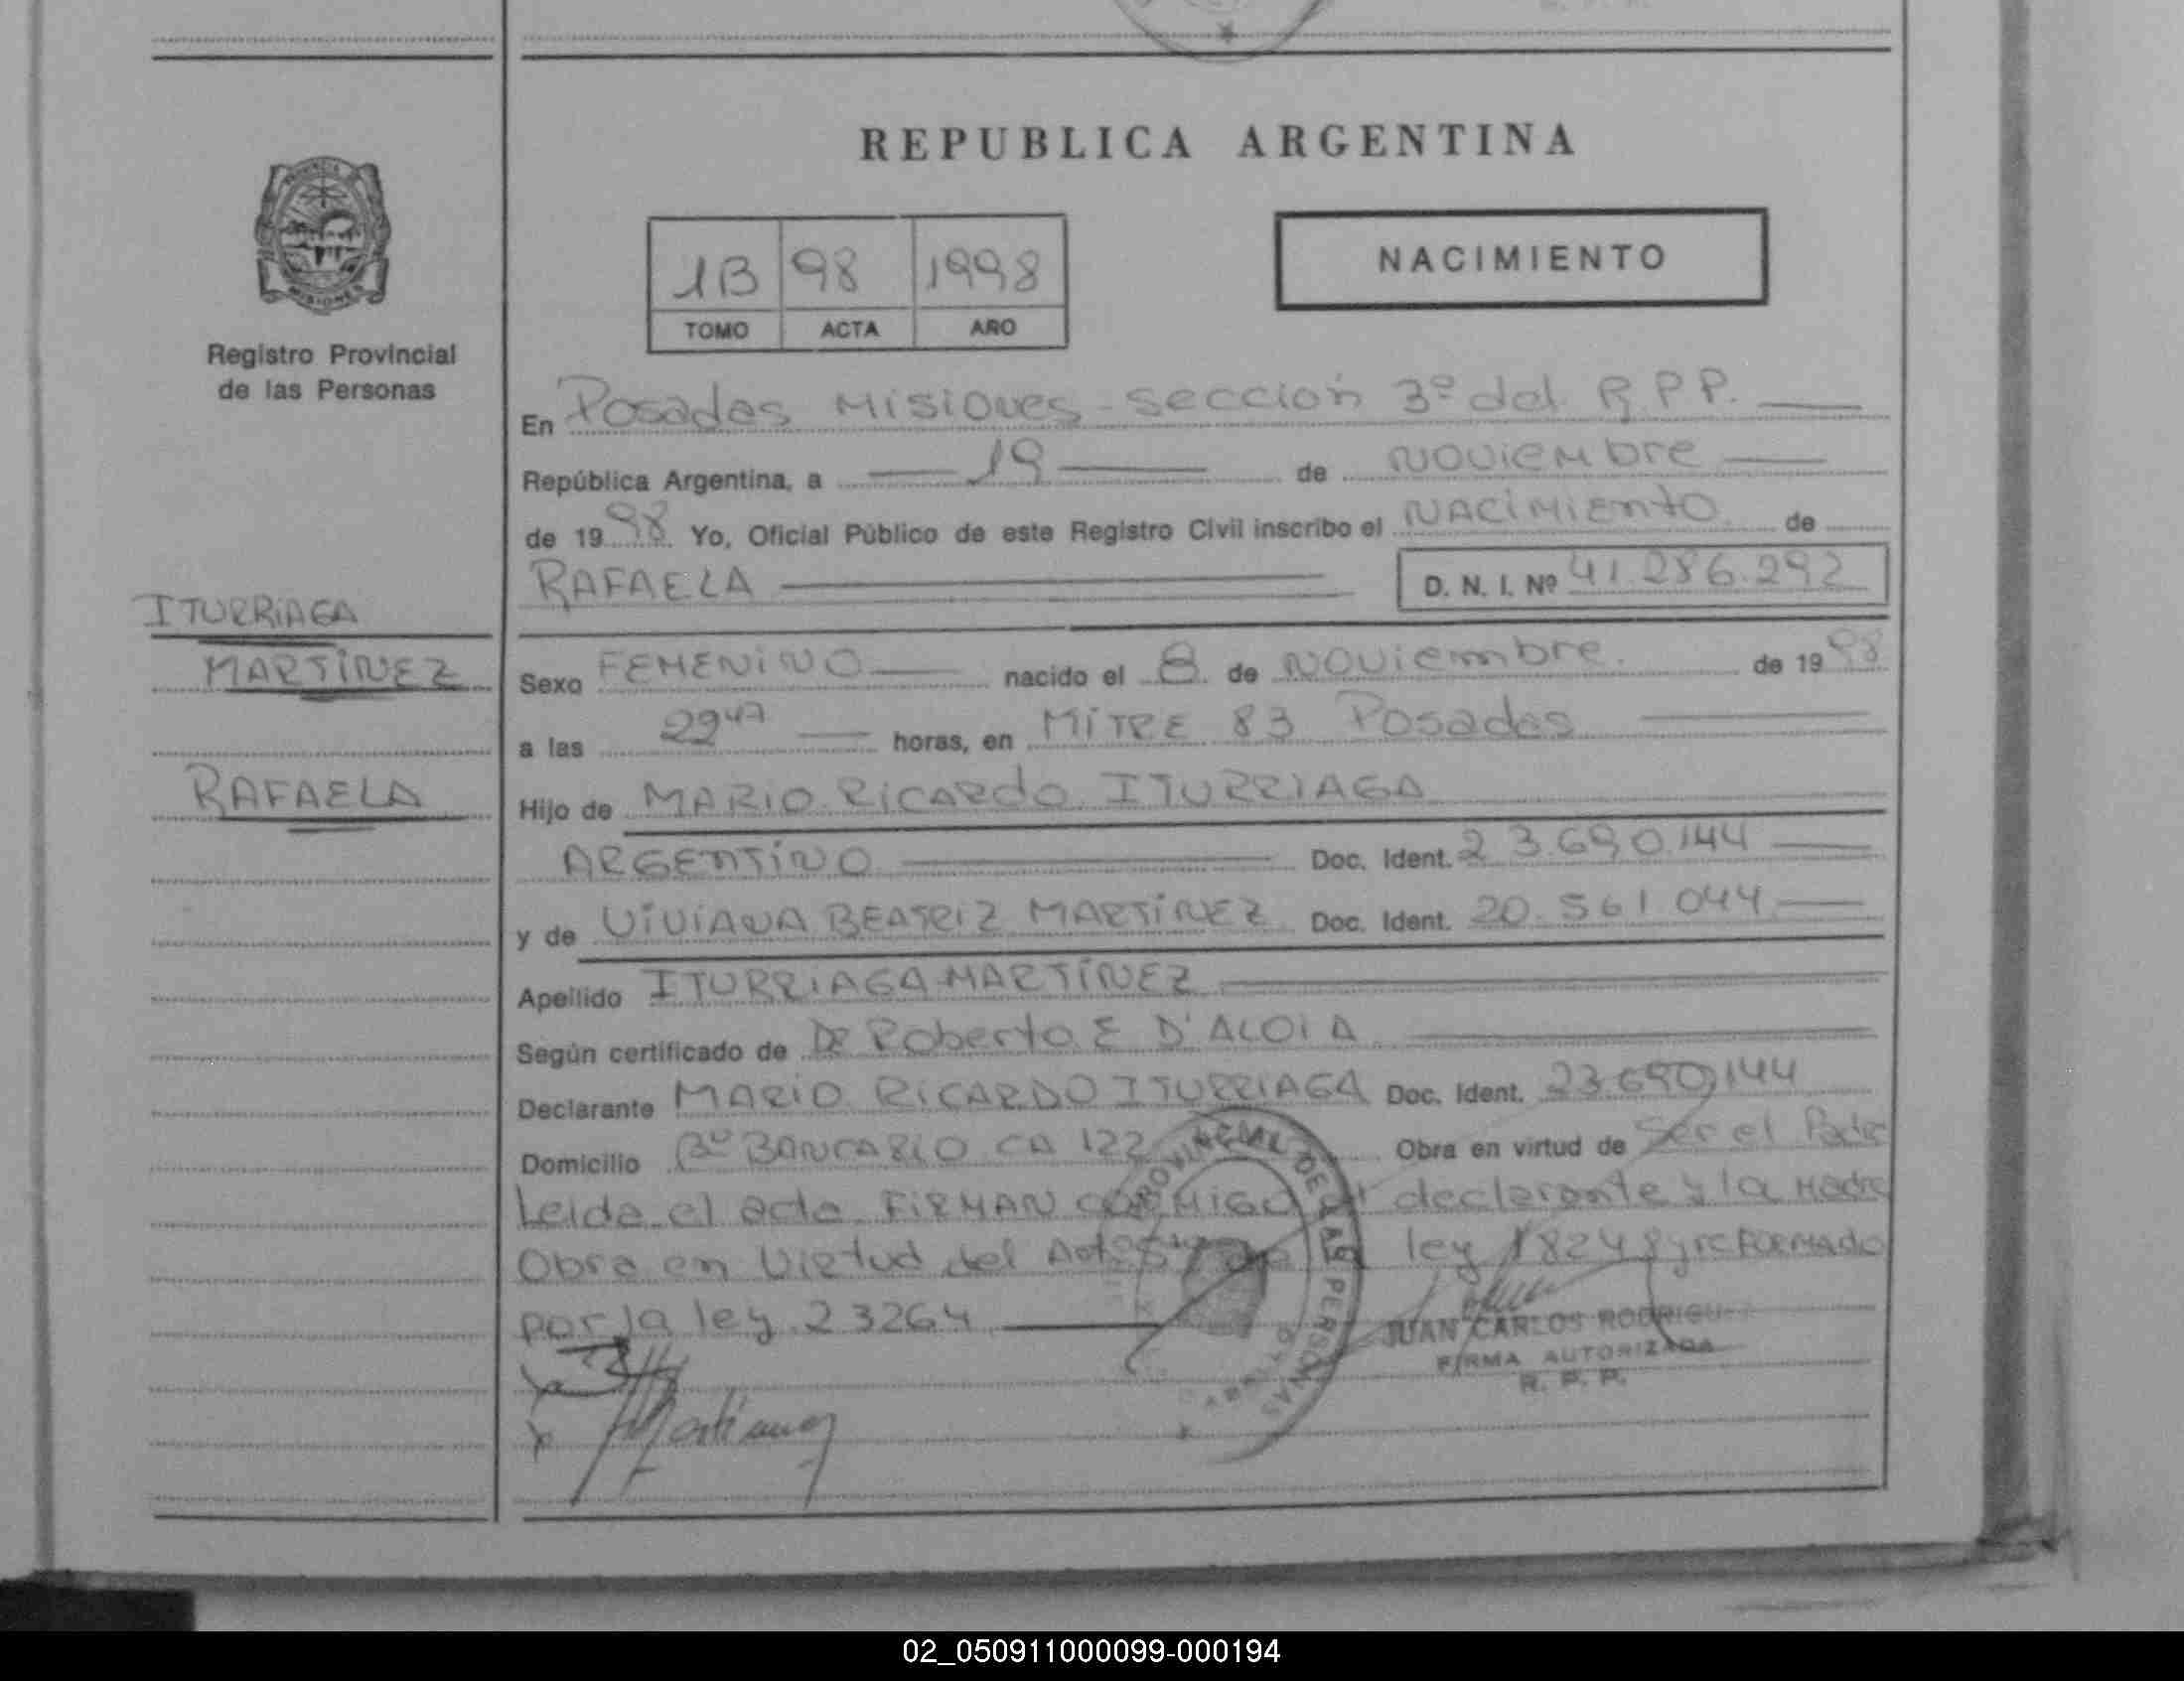 REPUBLICA ARGENTINA
1B 98 1998
TOMO ACTA AÑO
NACIMIENTO
PROVINCIA
MISIONES
Registro Provincial
de las Personas
ITURRIAGA
MARTÍNEZ
RAFAELA
En Posadas Misiones - sección 3º del R.P.P.
República Argentina, a 19 de Noviembre
de 1998 Yo, Oficial Público de este Registro Civil inscribo el NACIMIENTO de
RAFAELA D. N. I. Nº 41.286.292
Sexo FEMENINO nacido el 8 de Noviembre de 1998
a las 22 47 horas, en MITRE 83 Posadas
Hijo de MARIO RICARDO ITURRIAGA
ARGENTINO Doc. Ident. 23.690.144
y de VIVIANA BEATRIZ MARTÍNEZ Doc. Ident. 20.561.044
Apellido ITURRIAGA-MARTÍNEZ
Según certificado de Dr Roberto E D'ALOIA
Declarante MARIO RICARDO ITURRIAGA Doc. Ident. 23.690.144
Domicilio Bº BANCARIO CA 122 Obra en virtud de Ser el Padre
Leida el acta FIRMAN CONMIGO el declarante y la Madre
Obra en Virtud del ley 18248 y reformado
por la ley 23264
PROVINCIAL DE LAS PERSONAS
JUAN CARLOS RODRIGU
FIRMA AUTORIZADA
R. P. P.
02_050911000099-000194